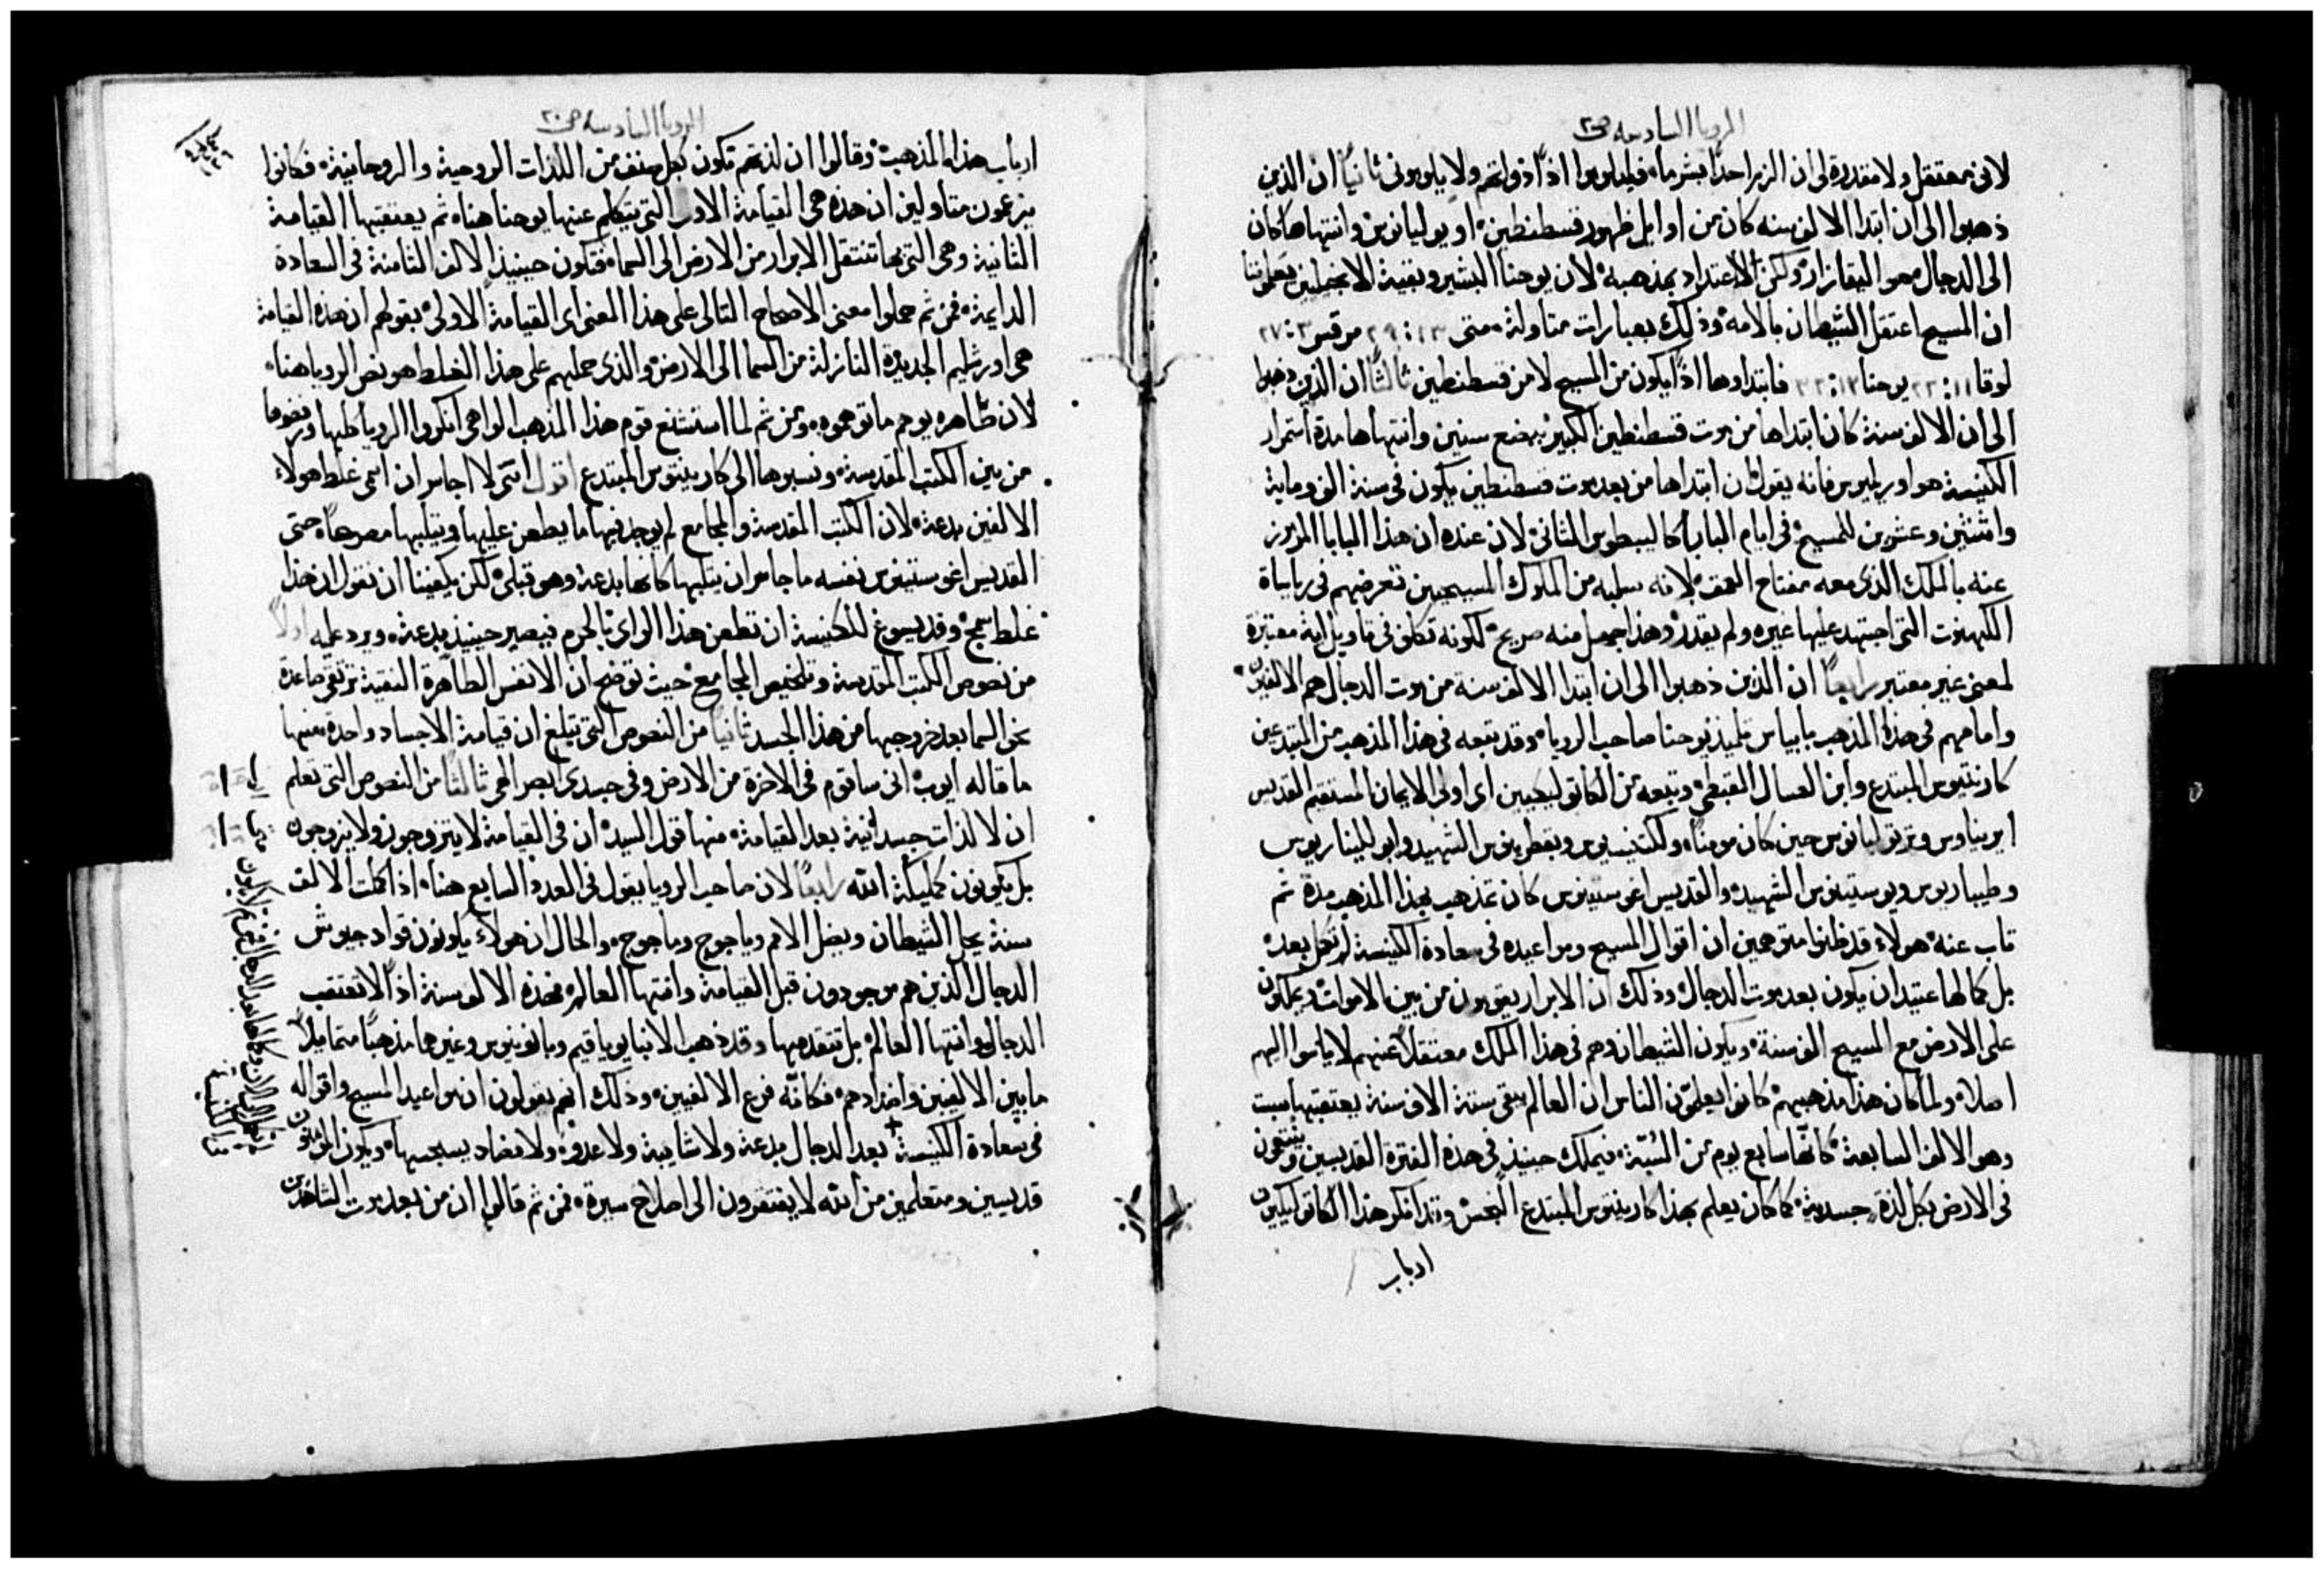 الرويا السادسه ص٢٠
لانى معتقل ولا مقدرة لى ان الزم احدًا بشر ما، فليلوموا اذًا ذواتهم ولا يلومونى ثانيًا ان الذين
ذهبوا الى ان ابتدا الالف سنه كان من اوايل ظهور قسطنطين، او يوليانوس وانتهاها كان
الى الدجال هو اليقازار، ولكن لا اعتداد بمذهبه، لان يوحنا البشير وبقية الانجيليين يعلموننا
ان المسيح اعتقل الشيطان بالامه، وذلك بعبارات متاولة، متى ١٣:٢٩ مرقس ٣:٢٧
لوقا ١١:٢٢ يوحنا ١٢:٣٢ فابتداوها اذًا يكون من المسيح لا من قسطنطين ثالثًا ان الذين ذهبوا
الى ان الالف سنة كان ابتداها من موت قسطنطين الكبير ببضع سنين وانتهاها مدة استمرار
الكنيسة هو اوريليوس فانه يقول ان ابتداها من بعد موت قسطنطين يكون فى سنة الف وماية
واثنتين وعشرين للمسيح، فى ايام البابا كاليسطوس الثانى، لان عنده ان هذا البابا المرموز
عنه بالملك الذى معه مفتاح العمق، لانه سلبه من الملوك المسيحيين تعرضهم فى رياساة
الكهنوت التى اجتهد عليها غيره ولم يقدر، وهذا جهل منه صريح، لكونه تكلف فى تاويل اية معتبرة
لمعنى غير معتبر رابعًا ان الذين ذهبوا الى ان ابتدا الالف سنه من موت الدجال هم الالفيين
وامامهم فى هذا المذهب بابياس تلميذ يوحنا صاحب الرويا، وقد تبعه فى هذا المذهب من المبتدعين
كارينتيوس المبتدع وابن العسال القبطى، وتبعه من الكاتوليكيين اى اولى الايمان المستقيم القديس
ايريناوس وترتوليانوس حين كان مومنًا، ولكتنسيوس وبقطرينوس الشهيد وابوللينا ريوس
وطيباريوس ويوستينوس الشهيد، والقديس اغوستينوس كان تمذهب بهذا المذهب مدة ثم
تاب عنه، هولاء قد ظنوا متوهمين ان اقوال المسيح ومواعيده فى سعادة الكنيسة لم تكمل بعد،
بل كمالها عتيد ان يكون بعد موت الدجال، وذلك ان الابرار يقومون من بين الاموات ويملكون
على الارض مع المسيح الف سنة، ويكون الشيطان وهم فى هذا الملك معتقلاً عنهم لا ياتوا اليهم
اصلاً، ولما كان هذا مذهبهم، كانوا يعلمون الناس ان العالم يبقى ستة الاف سنة يعتقبها سبت
وهو الالف السابعة، كانها سابع يوم من الستة، فيملك حينيذ فى هذه الفترة القديسين ويتمتعون
فى الارض بكل لذة جسدية، كما كان يعلم بهذا كارينتيوس المبتدع النجس، وقد انكر هذا الكاتوليكيين
ارباب
الرويا السادسه ص٢٠
ارباب هذا المذهب، وقالوا ان لذتهم تكون بكل صنف من اللذات الروحية والروحانية، فكانوا
يزعمون متاولين ان هذه هى القيامة الاولى التى يتكلم عنها يوحنا هنا، ثم يعتقبها القيامة
الثانية وهى التى بها تنتقل الابرار من الارض الى السما، فتكون حينيذ الالف الثامنة فى السعادة
الدايمة، فمن ثم حملوا معنى الاصحاح التالى على هذا المعنى اى القيامة الاولى، بقولهم ان هذه القيامة
هى اورشليم الجديدة النازلة من السما الى الارض، والذى حملهم على هذا الغلط هو نص الرويا هنا،
لان ظاهره يوهم ما توهموه، ومن ثم لما استشنع قوم هذا المذهب الواهى انكروا الرويا كلها ورفضوها
من بين الكتب المقدسة، ونسبوها الى كارينتوس المبتدع اقول اننى لا اجاسر ان اسمى غلط هولاء
الالفيين بدعة، لان الكتب المقدسة والمجامع لم يوجد فيها ما يطعن عليها ويثلبها مصرحًا، حتى
القديس اغوستينوس نفسه ما جاسر ان يثلبها كانها بدعة وهو قبلى، لكن يكفينا ان نقول ان هذا
غلط سمج، وقد يسوغ للكنيسة ان تطعن هذا الراى بالحرم فيصير حينيذ بدعة، ويرد عليه اولاً
من نصوص الكتب المقدسة وتلخيص المجامع، حيث توضح ان الانفس الطاهرة النقية ترتقى صاعدة
نحو السما بعد خروجها من هذا الجسد ثانيًا من النصوص التى تبلغ ان قيامة الاجساد واحدة، منها
ما قاله ايوب، انى ساقوم فى الاخرة من الارض وفى جسدى ابصر الهى ثالثًا من النصوص التى تعلم
ان لا لذات جسدانية بعد القيامة، منها قول السيد، ان فى القيامة لا يتزوجون ولا يزوجون
بل يكونون كمليكة الله رابعًا لان صاحب الرويا يقول فى العدد السابع هنا، اذا كملت الالف
سنة يحل الشيطان ويضل الامم وياجوج وماجوج، والحال ان هولاء يكونون قواد جيوش
الدجال الذين هم موجودون قبل القيامة وانتها العالم، فهذه الالف سنة اذًا لا تعتقب
الدجال وانتها العالم، بل تتقدمها، وقد ذهب الانبا يوياقيم وبانونيوس وغيرها مذهبًا متمايلاً
ما بين الالفيين واضدادهم، فكانه فرع الالفيين، وذلك انهم يقولون ان مواعيد المسيح واقواله
فى سعادة الكنيسة + بعد الدجال بدعة ولا شايبة ولا عدو، ولا مضاد يسجسها، ويكون المومنون
قديسين ومتعلمين من الله لا يفتقرون الى اصلاح سيرة، فمن ثم قالوا ان من بعد موت الشاهدين